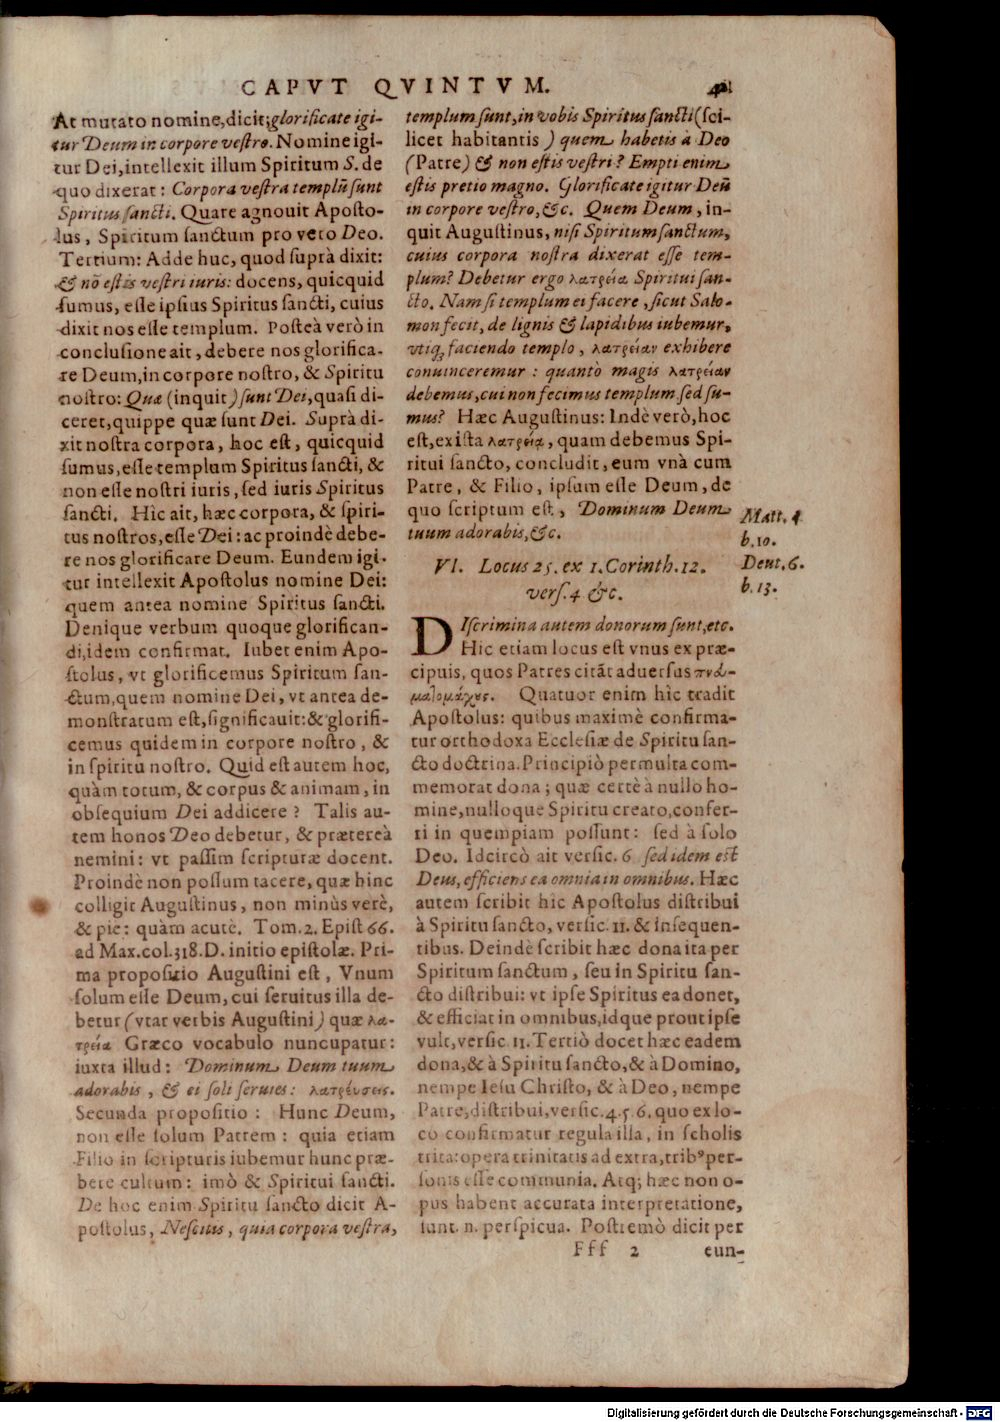 CAPVT QVINTVM.
At mutato nomine, dicit; glorificate igi-
tur Deum in corpore vestro. Nomine igi-
tur Dei, intellexit illum Spiritum S. de
quo dixerat: Corpora vestra templū sunt
Spiritus sancti. Quare agnouit Aposto-
lus, Spiritum sanctum pro vero Deo.
Tertium: Adde huc, quod suprà dixit:
& nō estis vestri iuris: docens, quicquid
sumus, esse ipsius Spiritus sancti, cuius
dixit nos esse templum. Posteà verò in
conclusione ait, debere nos glorifica-
re Deum, in corpore nostro, & Spiritu
nostro: Quæ (inquit) sunt Dei, quasi di-
ceret, quippe quæ sunt Dei. Suprà di-
xit nostra corpora, hoc est, quicquid
sumus, esse templum Spiritus sancti, &
non esse nostri iuris, sed iuris Spiritus
sancti. Hîc ait, hæc corpora, & spiri-
tus nostros, esse Dei: ac proindè debe-
re nos glorificare Deum. Eundem igi-
tur intellexit Apostolus nomine Dei:
quem antea nomine Spiritus sancti.
Denique verbum quoque glorifican-
di, idem confirmat. Iubet enim Apo-
stolus, vt glorificemus Spiritum san-
ctum, quem nomine Dei, vt antea de-
monstratum est, significauit: & glorifi-
cemus quidem in corpore nostro, &
in spiritu nostro. Quid est autem hoc,
quàm totum, & corpus & animam, in
obsequium Dei addicere? Talis au-
tem honos Deo debetur, & prætereà
nemini: vt passim scripturæ docent.
Proindè non possum tacere, quæ hinc
colligit Augustinus, non minùs verè,
& piè: quàm acutè. Tom. 2. Epist 66.
ad Max. col. 318. D. initio epistolæ. Pri-
ma propositio Augustini est, Vnum
solum esse Deum, cui seruitus illa de-
betur (vtar verbis Augustini) quæ λα-
τρεία Græco vocabulo nuncupatur:
iuxta illud: Dominum Deum tuum
adorabis, & ei soli seruies: λατρεύσεις.
Secunda propositio: Hunc Deum,
non esse solum Patrem: quia etiam
Filio in scripturis iubemur hunc præ-
bere cultum: imò & Spiritui sancti.
De hoc enim Spiritu sancto dicit A-
postolus, Nescitis, quia corpora vestra,
templum sunt, in vobis Spiritus sancti (sci-
licet habitantis) quem habetis à Deo
(Patre) & non estis vestri? Empti enim
estis pretio magno. Glorificate igitur Deū
in corpore vestro, &c. Quem Deum, in-
quit Augustinus, nisi Spiritum sanctum,
cuius corpora nostra dixerat esse tem-
plum? Debetur ergo λατρεία Spiritui san-
cto. Nam si templum ei facere, sicut Salo-
mon fecit, de lignis & lapidibus iubemur,
vtiq; faciendo templo, λατρείαν exhibere
conuinceremur: quantò magis λατρείαν
debemus, cui non fecimus templum sed su-
mus? Hæc Augustinus: Indè verò, hoc
est, ex ista λατρεία, quam debemus Spi-
ritui sancto, concludit, eum vnà cum
Patre, & Filio, ipsum esse Deum, de
quo scriptum est, Dominum Deum
tuum adorabis, &c.
Matt. 4
b. 10.
Deut. 6.
b. 13.
VI. Locus 25. ex 1. Corinth. 12.
vers. 4 &c.
DIscrimina autem donorum sunt, etc.
Hic etiam locus est vnus ex præ-
cipuis, quos Patres citāt aduersus πνευ-
ματομάχους. Quatuor enim hîc tradit
Apostolus: quibus maximè confirma-
tur orthodoxa Ecclesiæ de Spiritu san-
cto doctrina. Principiò permulta com-
memorat dona; quæ certè à nullo ho-
mine, nulloque Spiritu creato, confer-
ri in quempiam possunt: sed à solo
Deo. Idcircò ait versic. 6 sed idem est
Deus, efficiens ea omnia in omnibus. Hæc
autem scribit hîc Apostolus distribui
à Spiritu sancto, versic. 11. & insequen-
tibus. Deindè scribit hæc dona ita per
Spiritum sanctum, seu in Spiritu san-
cto distribui: vt ipse Spiritus ea donet,
& efficiat in omnibus, idque prout ipse
vult, versic. 11. Tertiò docet hæc eadem
dona, & à Spiritu sancto, & à Domino,
nempe Iesu Christo, & à Deo, nempe
Patre, distribui, versic. 4. 5. 6. quo ex lo-
co confirmatur regula illa, in scholis
trita: opera trinitatis ad extra, tribꝰ per-
sonis esse communia. Atq; hæc non o-
pus habent accurata interpretatione,
sunt. n. perspicua. Postremò dicit per
Fff 2 eun-
Digitalisierung gefördert durch die Deutsche Forschungsgemeinschaft - DFG